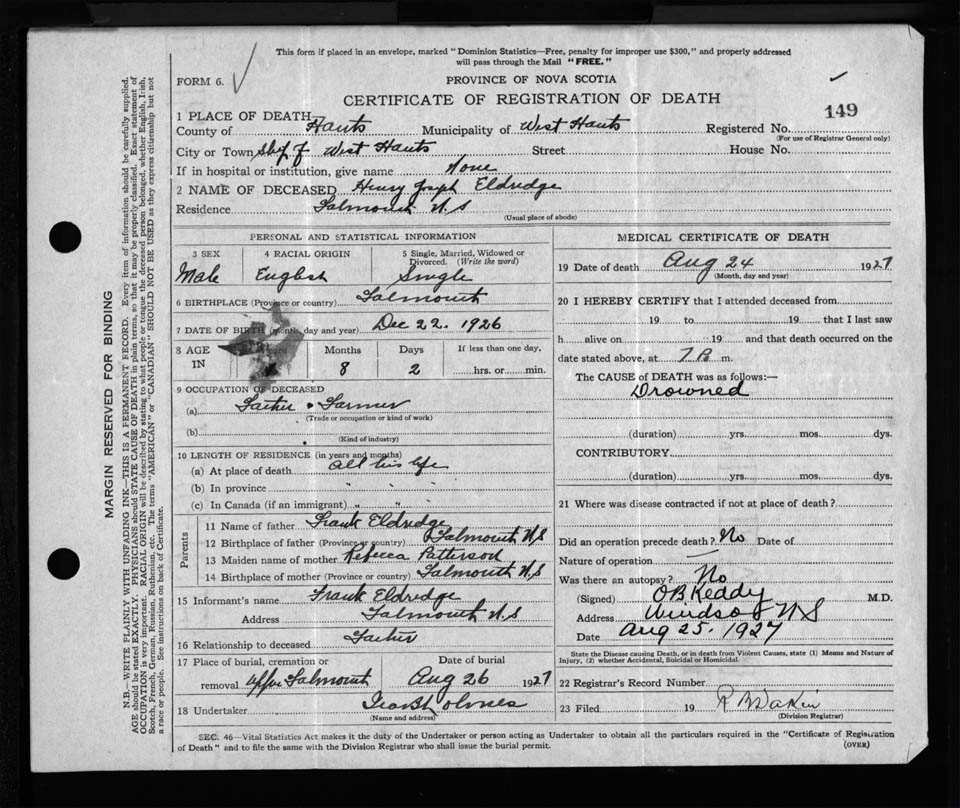 This form if placed in an envelope, marked "Dominion Statistics—Free, penalty for improper use $300," and properly addressed
will pass through the Mail "FREE."
FORM 6.
PROVINCE OF NOVA SCOTIA
CERTIFICATE OF REGISTRATION OF DEATH
149
1 PLACE OF DEATH
County of Hants Municipality of West Hants Registered No.
(For use of Registrar General only)
City or Town Shp of West Hants Street House No.
If in hospital or institution, give name None
2 NAME OF DECEASED Henry Joseph Eldredge
Residence Falmouth N.S
(Usual place of abode)
PERSONAL AND STATISTICAL INFORMATION
3 SEX 4 RACIAL ORIGIN 5 Single, Married, Widowed or
Divorced. (Write the word)
Male English Single
6 BIRTHPLACE (Province or country) Falmouth
7 DATE OF BIRTH (month, day and year) Dec 22. 1926
8 AGE Years Months Days If less than one day,
IN 8 2 hrs. or min.
9 OCCUPATION OF DECEASED
(a) Father • Farmer
(Trade or occupation or kind of work)
(b)
(Kind of industry)
10 LENGTH OF RESIDENCE (in years and months)
(a) At place of death all his life
(b) In province " " "
(c) In Canada (if an immigrant) " " "
Parents
11 Name of father Frank Eldredge
12 Birthplace of father (Province or country) Falmouth N.S
13 Maiden name of mother Rebecca Patterson
14 Birthplace of mother (Province or country) Falmouth N.S
15 Informant's name Frank Eldredge
Address Falmouth N.S
16 Relationship to deceased Father
17 Place of burial, cremation or Date of burial
removal Upper Falmouth Aug 26 1927
18 Undertaker
(Name and address)
MEDICAL CERTIFICATE OF DEATH
19 Date of death Aug 24 1927
(Month, day and year)
20 I HEREBY CERTIFY that I attended deceased from
19 to 19 that I last saw
h alive on 19 and that death occurred on the
date stated above, at 7 P. m.
The CAUSE of DEATH was as follows:—
Drowned
(duration) yrs. mos. dys.
CONTRIBUTORY
(duration) yrs. mos. dys.
21 Where was disease contracted if not at place of death?
Did an operation precede death? No Date of
Nature of operation —
Was there an autopsy? No
(Signed) O B Keddy M.D.
Address Windsor N S
Date Aug 25. 1927
State the Disease causing Death, or in death from Violent Causes, state (1) Means and Nature of
Injury, (2) whether Accidental, Suicidal or Homicidal.
22 Registrar's Record Number
23 Filed 19
(Division Registrar)
SEC. 46—Vital Statistics Act makes it the duty of the Undertaker or person acting as Undertaker to obtain all the particulars required in the "Certificate of Registration
of Death" and to file the same with the Division Registrar who shall issue the burial permit. (OVER)
MARGIN RESERVED FOR BINDING
N.B.—WRITE PLAINLY WITH UNFADING INK—THIS IS A PERMANENT RECORD. Every item of information should be carefully supplied.
AGE should be stated EXACTLY. PHYSICIANS should STATE CAUSE OF DEATH in plain terms, so that it may be properly classified. Exact statement of
OCCUPATION is very important. RACIAL ORIGIN will be described by stating to what people or tongue the deceased person belonged, whether English, Irish,
Scotch, French, German, Russian, Ruthenian, etc. The terms "AMERICAN" or "CANADIAN" SHOULD NOT BE USED as they express citizenship but not
a race or people. See instructions on back of Certificate.